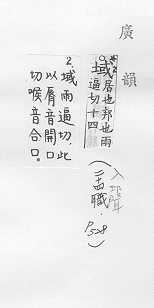 廣韻
域居也邦也雨
逼切十四
入聲
(二十四職.
P.528)
2.域雨逼切,此
以脣音開口
切喉音合口。